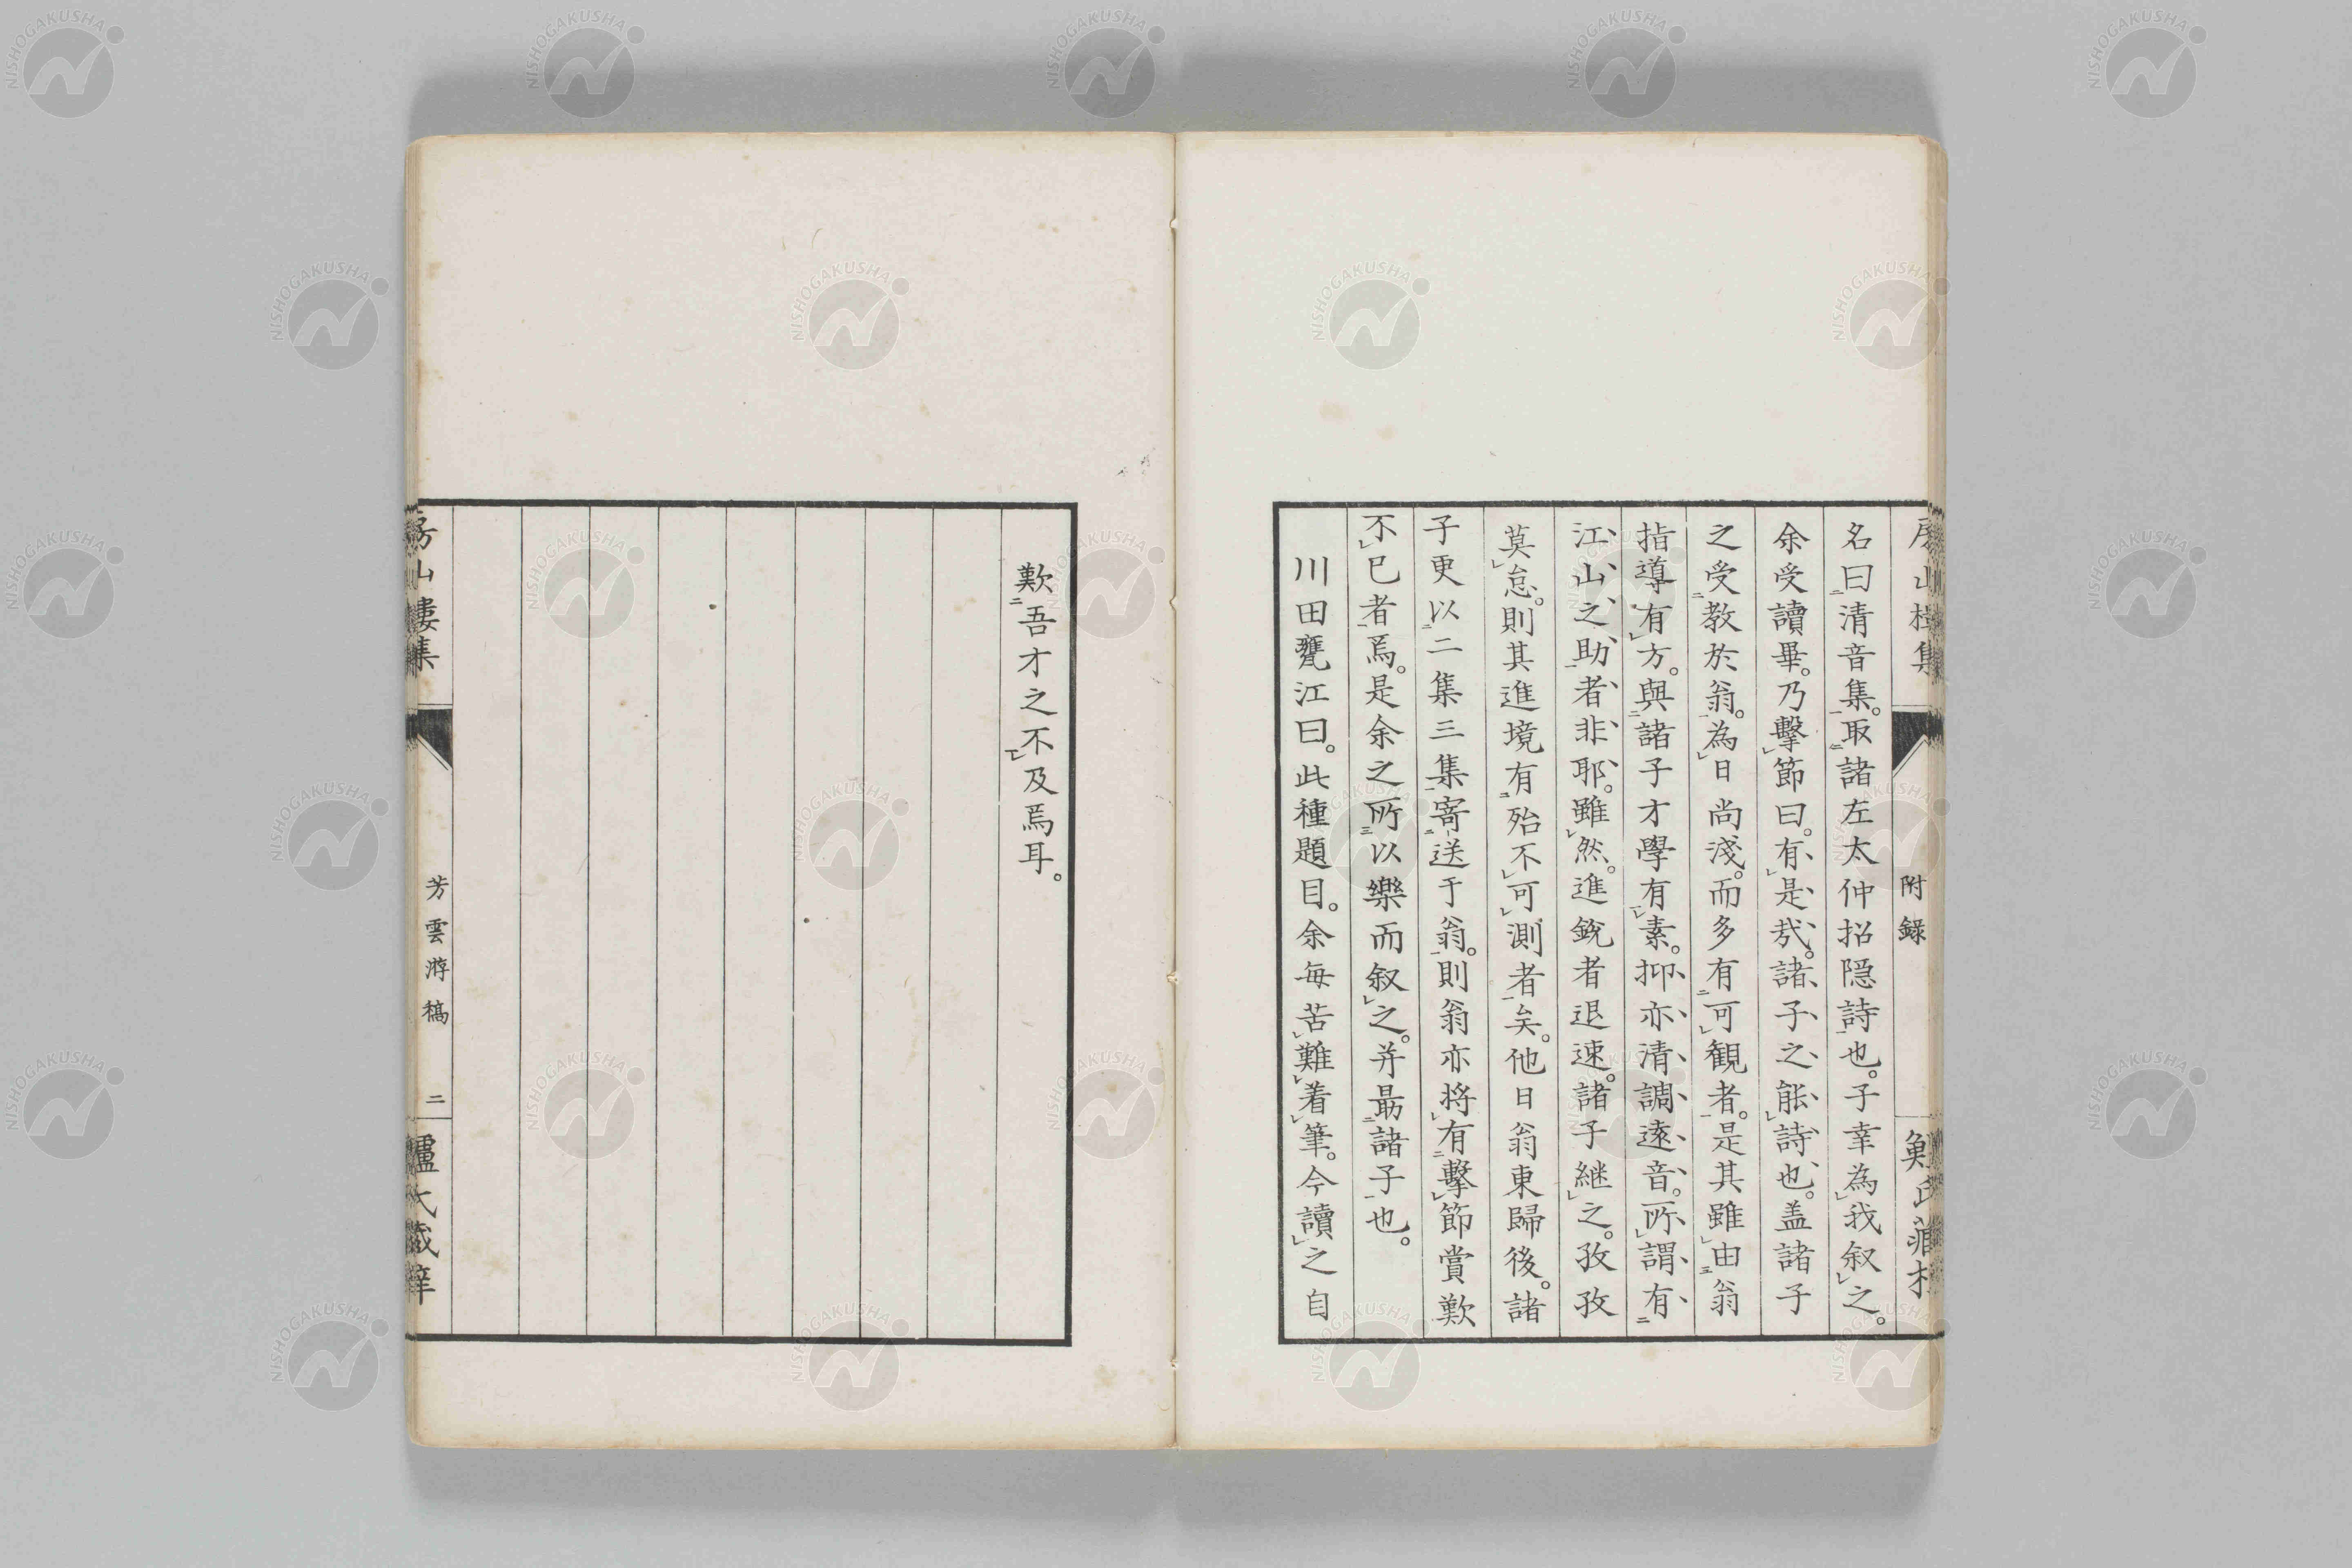 附錄
名曰清音集。取諸左太仲招隠詩也。子幸為我叙之。
余受讀畢。乃擊節曰。有是㢤。諸子之能詩也。盖諸子
之受教於翁。為日尚淺。而多有可観者。是其雖由翁
指導有方。與諸子才學有素。抑亦清調遠音。所謂有
江山之助者非耶。雖然。進銳者退速。諸子継之。孜孜
莫怠。則其進境有殆不可測者矣。他日翁東歸後。諸
子更以二集三集寄送于翁。則翁亦將有擊節賞歎
不已者焉。是余之所以樂而叙之。并朂諸子也。
川田甕江曰。此種題目。余每苦難着筆。今讀之自
歎吾才之不及焉耳。
房山樓集
芳雲游稿
二